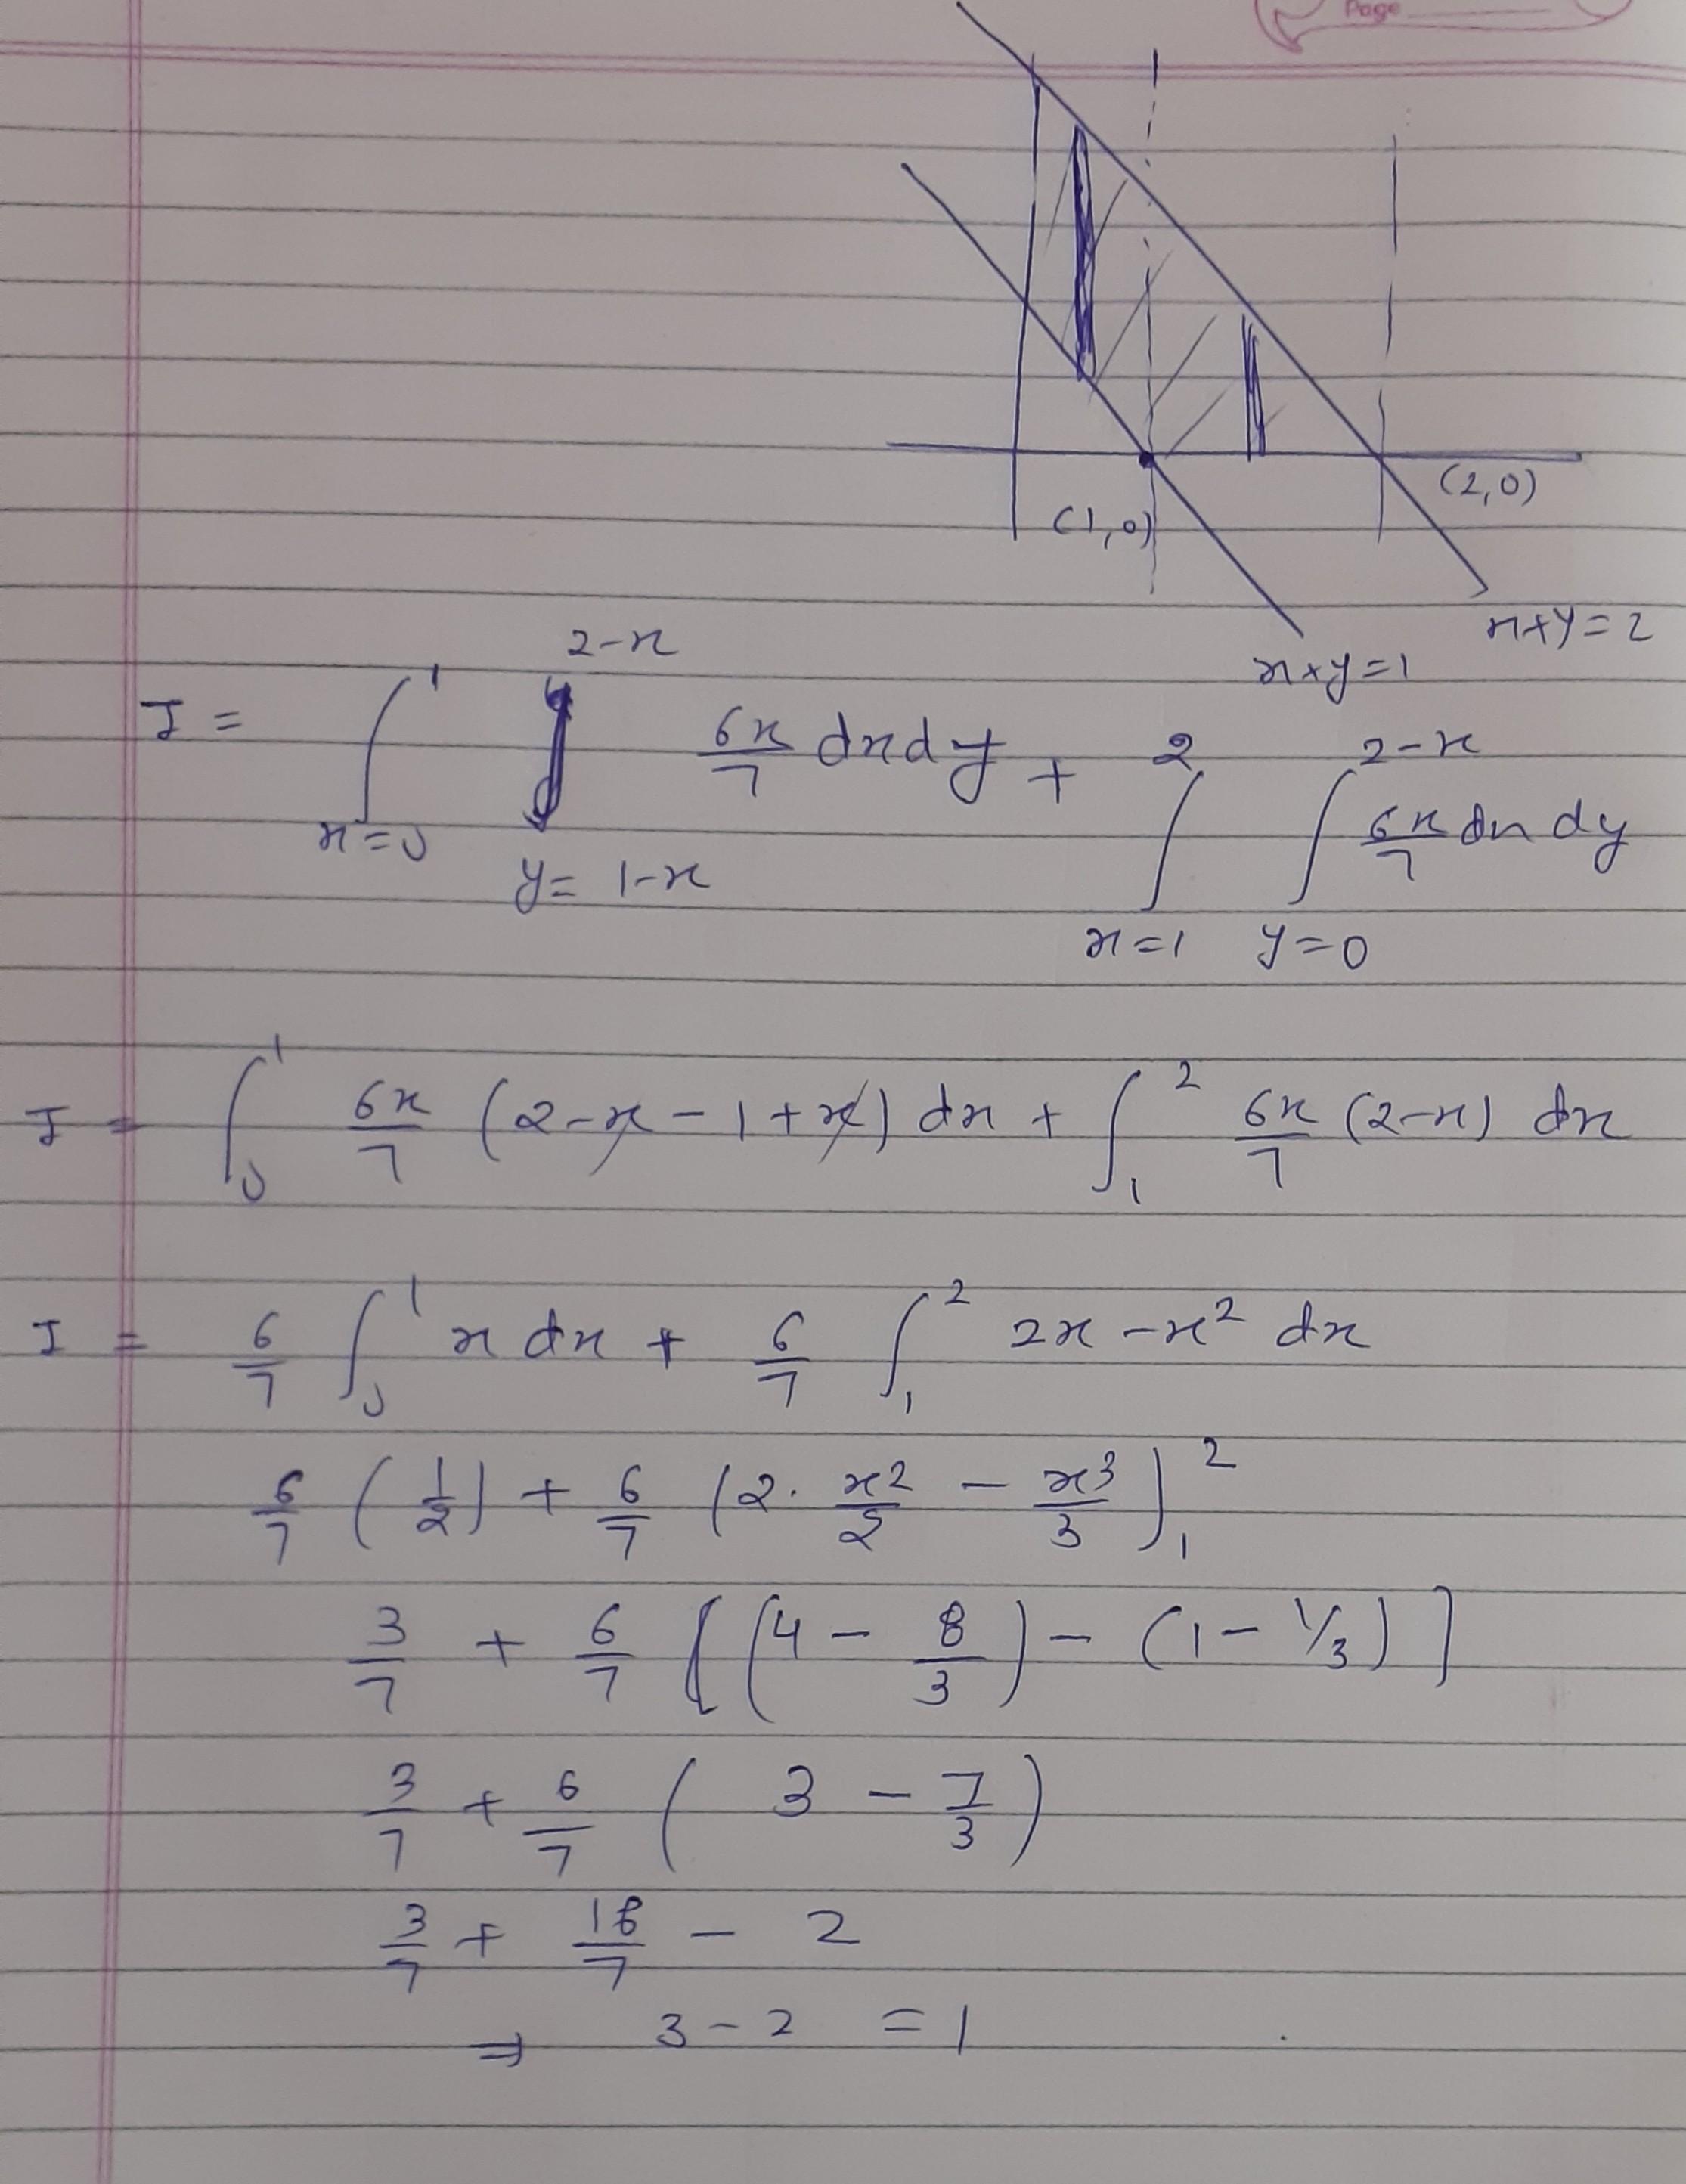 Page
(2,0)
(1,0)
x+y=2
x+y=1
I = ∫_{x=0}^{1} ∫_{y=1-x}^{2-x} 6x/7 dxdy + ∫_{x=1}^{2} ∫_{y=0}^{2-x} 6x/7 dx dy
I = ∫_0^1 6x/7 (2-x-1+x) dx + ∫_1^2 6x/7 (2-x) dx
I = 6/7 ∫_0^1 x dx + 6/7 ∫_1^2 2x-x² dx
6/7 (1/2) + 6/7 (2. x²/2 - x³/3)_1^2
3/7 + 6/7 [(4 - 8/3) - (1 - 1/3)]
3/7 + 6/7 (3 - 7/3)
3/7 + 18/7 - 2
⇒ 3-2 = 1